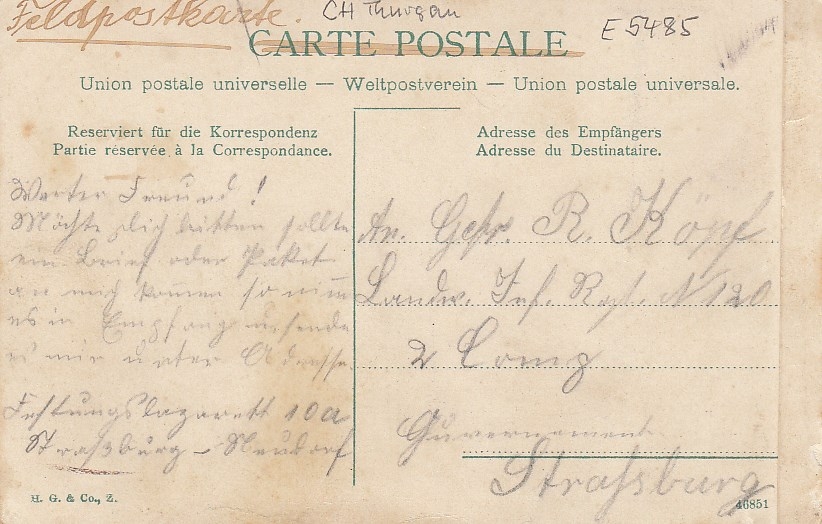 Feldpostkarte.
CH Thurgau
E 5485
CARTE POSTALE
Union postale universelle — Weltpostverein — Union postale universale.
Reserviert für die Korrespondenz
Partie réservée à la Correspondance.
Werter Freund!
Möchte dich bitten sollte
ein Brief oder Paket
an mich kommen so nimm
es in Empfang u. sende
es mir unter Adresse
Festungslazarett 10a
Straßburg – Neudorf
H. G. & Co., Z.
Adresse des Empfängers
Adresse du Destinataire.
An. Gefr. R. Köpf
Landw. Inf. Rgt. N 120
2 Comp
Guvernement
Strassburg
46851